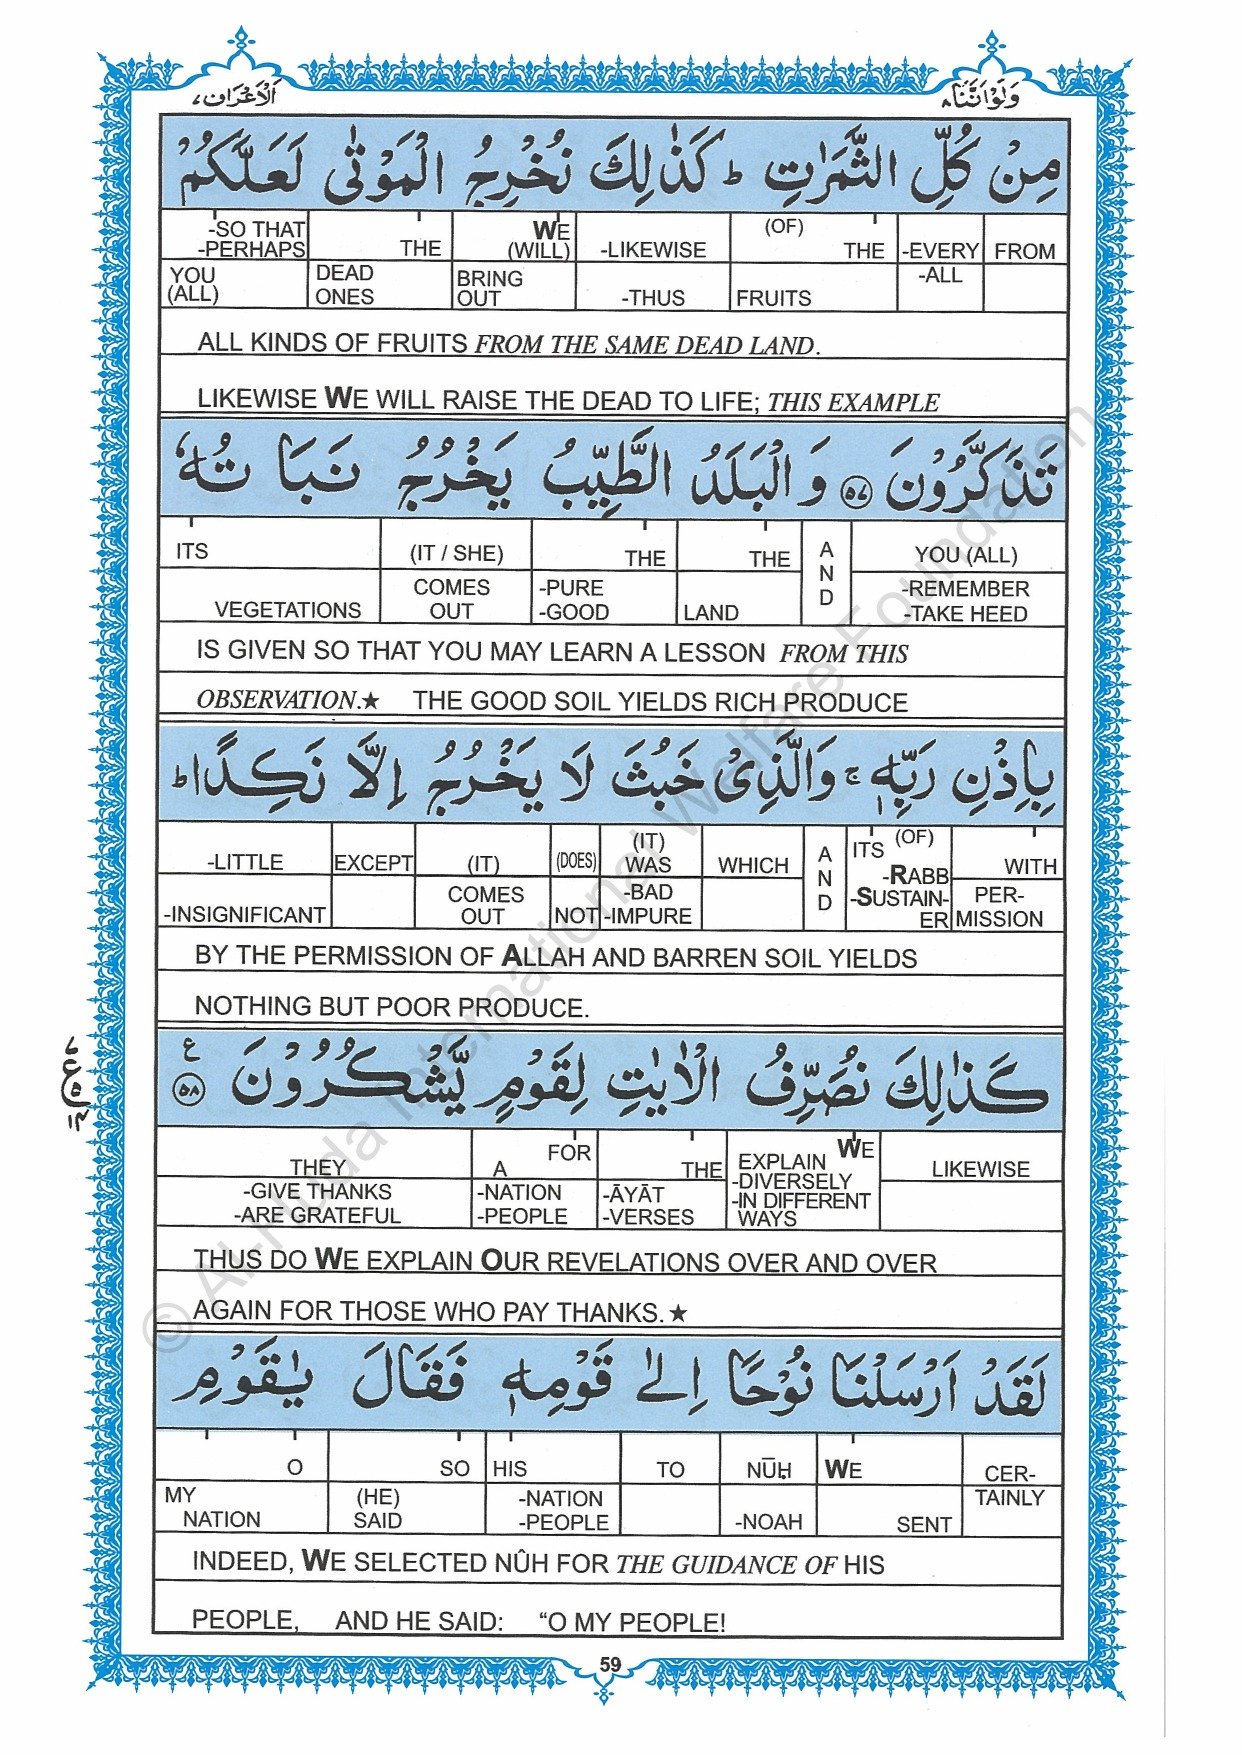 وَلَوْ اَنَّنَا ٨
اَلْاَعْرَاف ٧
مِنْ كُلِّ الثَّمَرٰتِ ؕ كَذٰلِكَ نُخْرِجُ الْمَوْتٰى لَعَلَّكُمْ
-SO THAT -PERHAPS THE WE (WILL) -LIKEWISE (OF) THE -EVERY FROM
YOU (ALL) DEAD ONES BRING OUT -THUS FRUITS -ALL
ALL KINDS OF FRUITS FROM THE SAME DEAD LAND.
LIKEWISE WE WILL RAISE THE DEAD TO LIFE; THIS EXAMPLE
تَذَكَّرُوْنَ ٥٧ وَ الْبَلَدُ الطَّيِّبُ يَخْرُجُ نَبَا تُهٗ
ITS (IT / SHE) THE THE AND YOU (ALL)
VEGETATIONS COMES OUT -PURE -GOOD LAND -REMEMBER -TAKE HEED
IS GIVEN SO THAT YOU MAY LEARN A LESSON FROM THIS
OBSERVATION.★ THE GOOD SOIL YIELDS RICH PRODUCE
بِاِذْنِ رَبِّهٖ ۚ وَالَّذِىْ خَبُثَ لَا يَخْرُجُ اِلَّا نَكِدًا ؕ
-LITTLE EXCEPT (IT) (DOES) (IT) WAS WHICH AND ITS (OF) -RABB WITH
-INSIGNIFICANT COMES OUT NOT -BAD -IMPURE -SUSTAIN-ER PER-MISSION
BY THE PERMISSION OF ALLAH AND BARREN SOIL YIELDS
NOTHING BUT POOR PRODUCE.
كَذٰلِكَ نُصَرِّفُ الْاٰيٰتِ لِقَوْمٍ يَّشْكُرُوْنَ ٥٨ ع
٧
ع
٥
١٤
THEY A FOR THE EXPLAIN WE LIKEWISE
-GIVE THANKS -ARE GRATEFUL -NATION -PEOPLE -ĀYĀT -VERSES -DIVERSELY -IN DIFFERENT WAYS
THUS DO WE EXPLAIN OUR REVELATIONS OVER AND OVER
AGAIN FOR THOSE WHO PAY THANKS.★
لَقَدْ اَرْسَلْنَا نُوْحًا اِلٰى قَوْمِهٖ فَقَالَ يٰقَوْمِ
O SO HIS TO NŪḤ WE CER-
MY NATION (HE) SAID -NATION -PEOPLE -NOAH SENT TAINLY
INDEED, WE SELECTED NÛH FOR THE GUIDANCE OF HIS
PEOPLE, AND HE SAID: “O MY PEOPLE!
59
© Al-Huda International Welfare Foundation